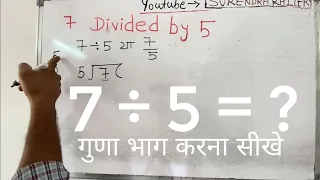 Youtube → SURENDRA KHILERI
7 Divided by 5
7 ÷ 5 या 7/5
5
5√7(
7 ÷ 5 = ?
गुणा भाग करना सीखे